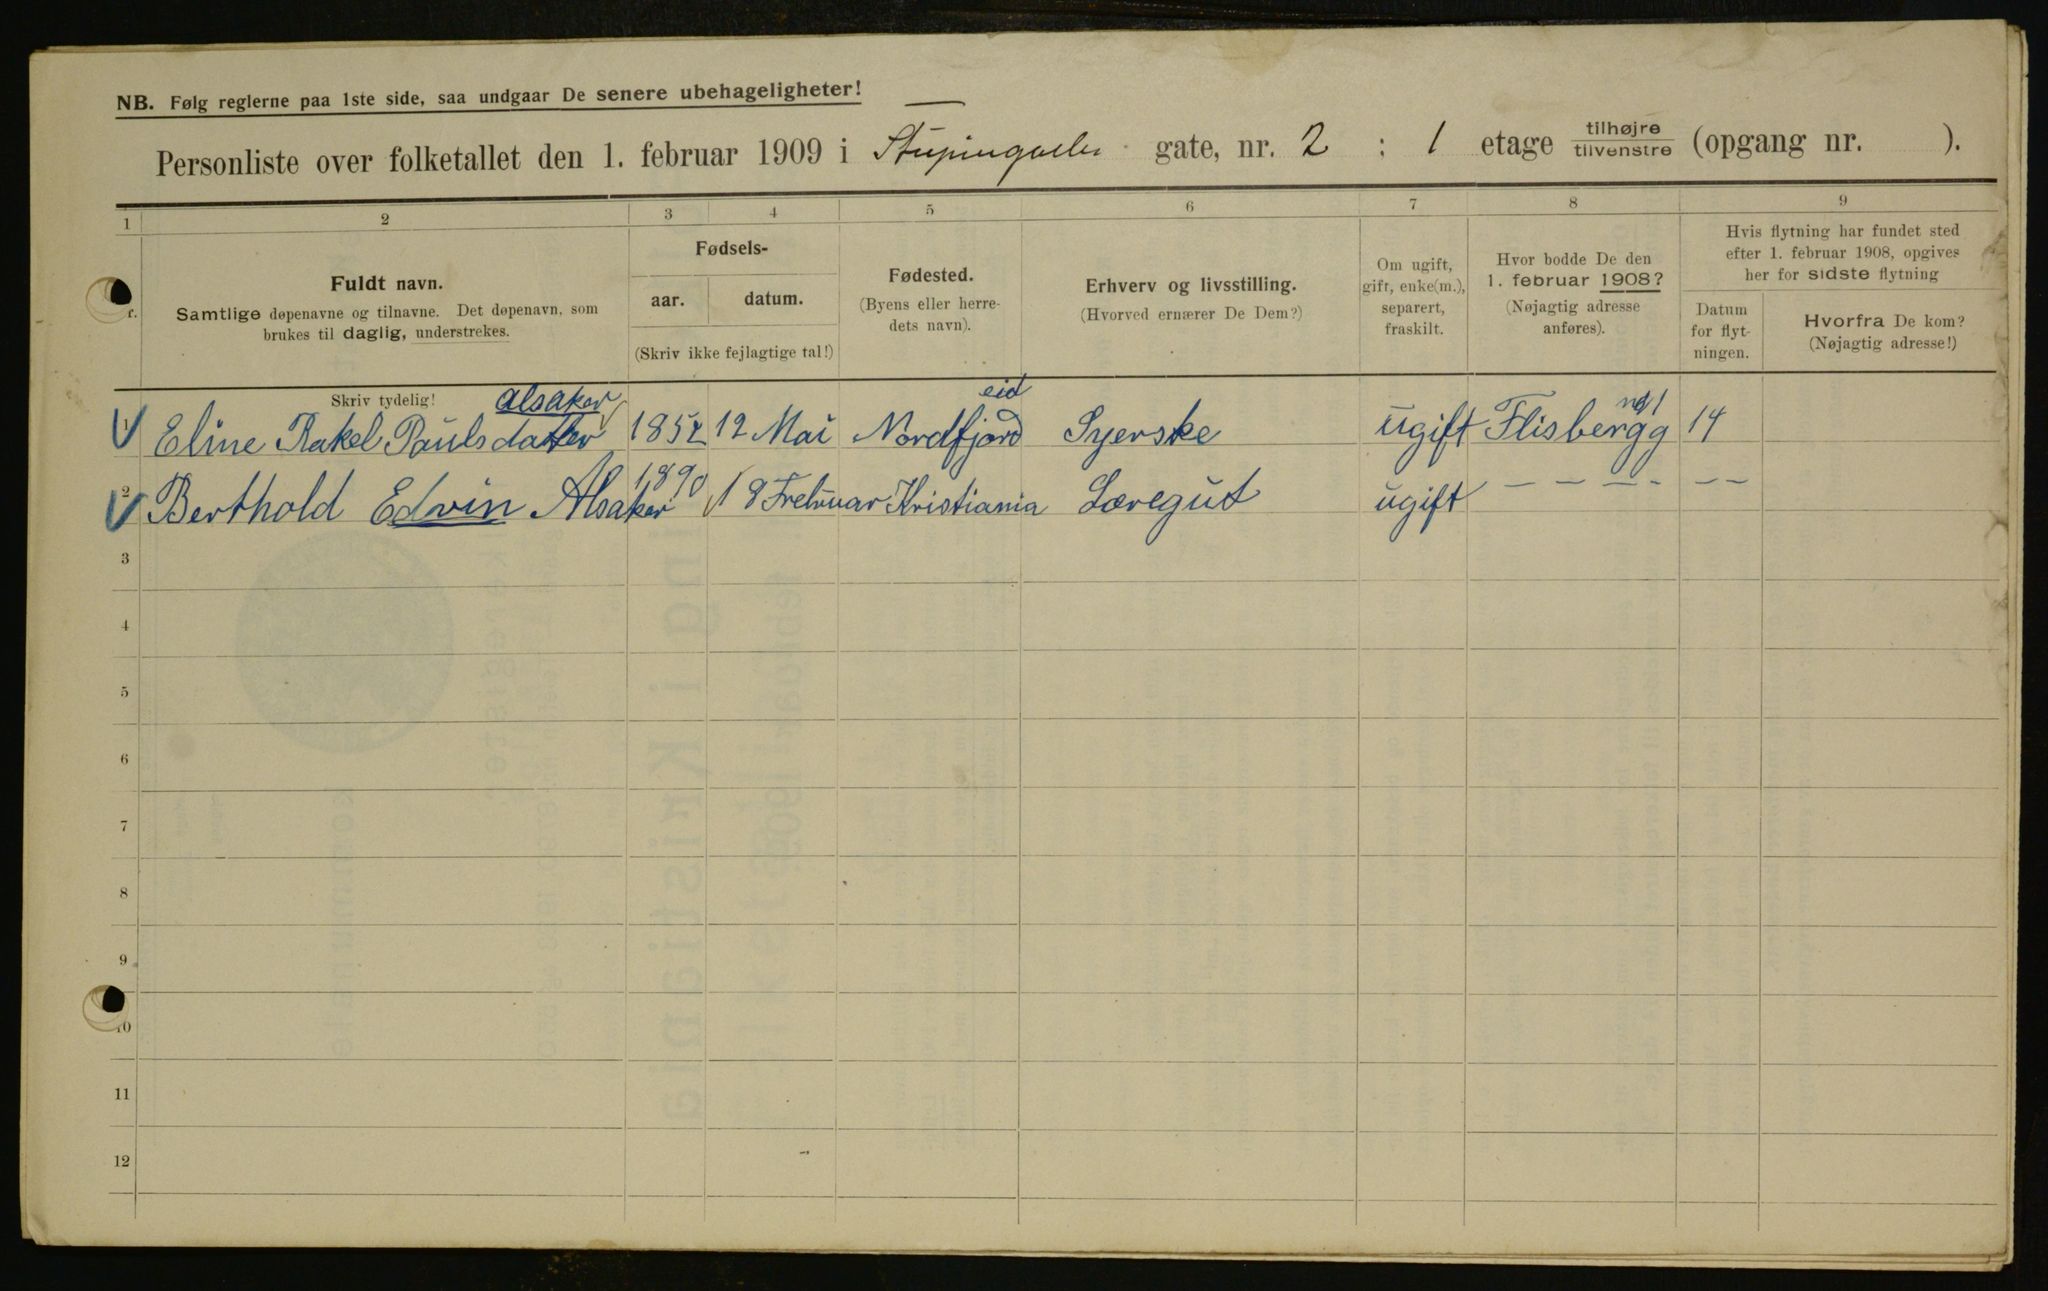 NB. Følg reglerne paa 1ste side, saa undgaar De senere ubehageligheter!
Personliste over folketallet den 1. februar 1909 i gate, nr. 2 : 1 etage tilhøjre tilvenstre (opgang nr. ).
1 2 3 4 5 6 7 8 9
Fuldt navn.
Samtlige døpenavne og tilnavne. Det døpenavn, som
brukes til daglig, understrekes.
Skriv tydelig!
Fødsels-
aar. datum.
(Skriv ikke fejlagtige tal!)
Fødested.
(Byens eller herre-
dets navn).
Erhverv og livsstilling.
(Hvorved ernærer De Dem?)
Om ugift,
gift, enke(m.),
separert,
fraskilt.
Hvor bodde De den
1. februar 1908?
(Nøjagtig adresse
anføres).
Hvis flytning har fundet sted
efter 1. februar 1908, opgives
her for sidste flytning
Datum
for flyt-
ningen.
Hvorfra De kom?
(Nøjagtig adresse!)
alsaker eid
1 Eline Rakel Paulsdatter 1852 12 Mai Nordfjord Syerske ugift Flisbergg 14
2 Berthold Edvin Alsaker 1890 18 Februar Kristiania Læregut ugift — — — - — —
3
4
5
6
7
8
9
10
11
12